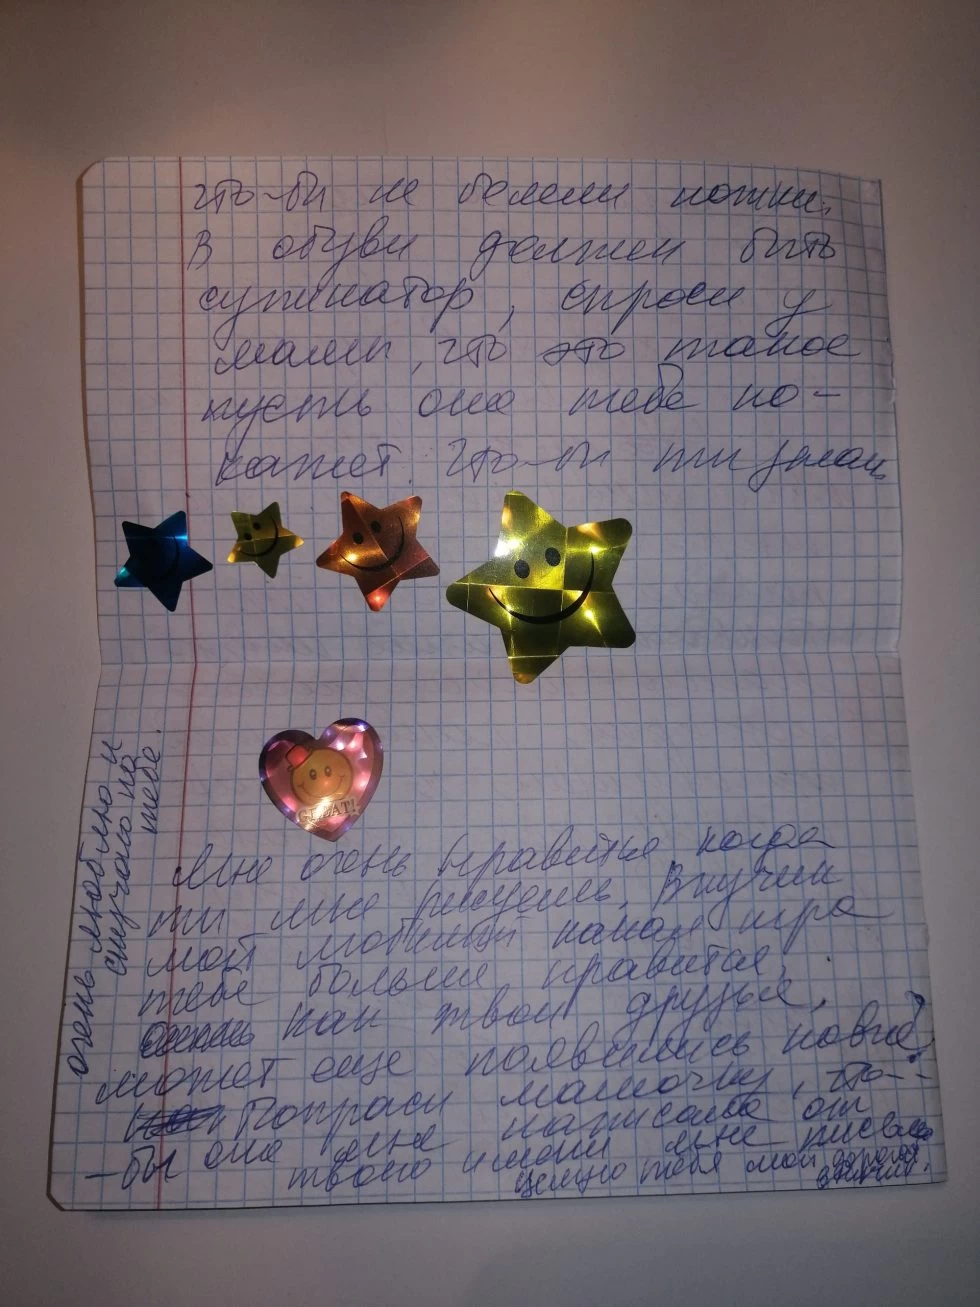 что-бы не болели ножки.
В обуви должен быть
супинатор, спроси у
мамы, что это такое
пусть она тебе по-
кажет. что-бы ты знал
GREAT!
Мне очень нравится когда
ты мне рисуешь. Внучик
мой любимый какая игра
тебе больше нравится,
как твои друзья,
может еще появились новые?
Попроси мамочку, что-
-бы она мне написала от
твоего имени мне письмо
целую тебя мой дорогой
очень люблю и
скучаю по
тебе.